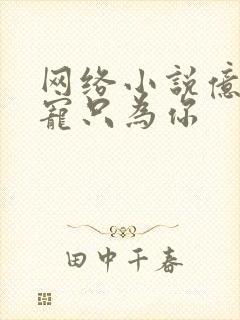 网络小説億
寵只為你
田中千春